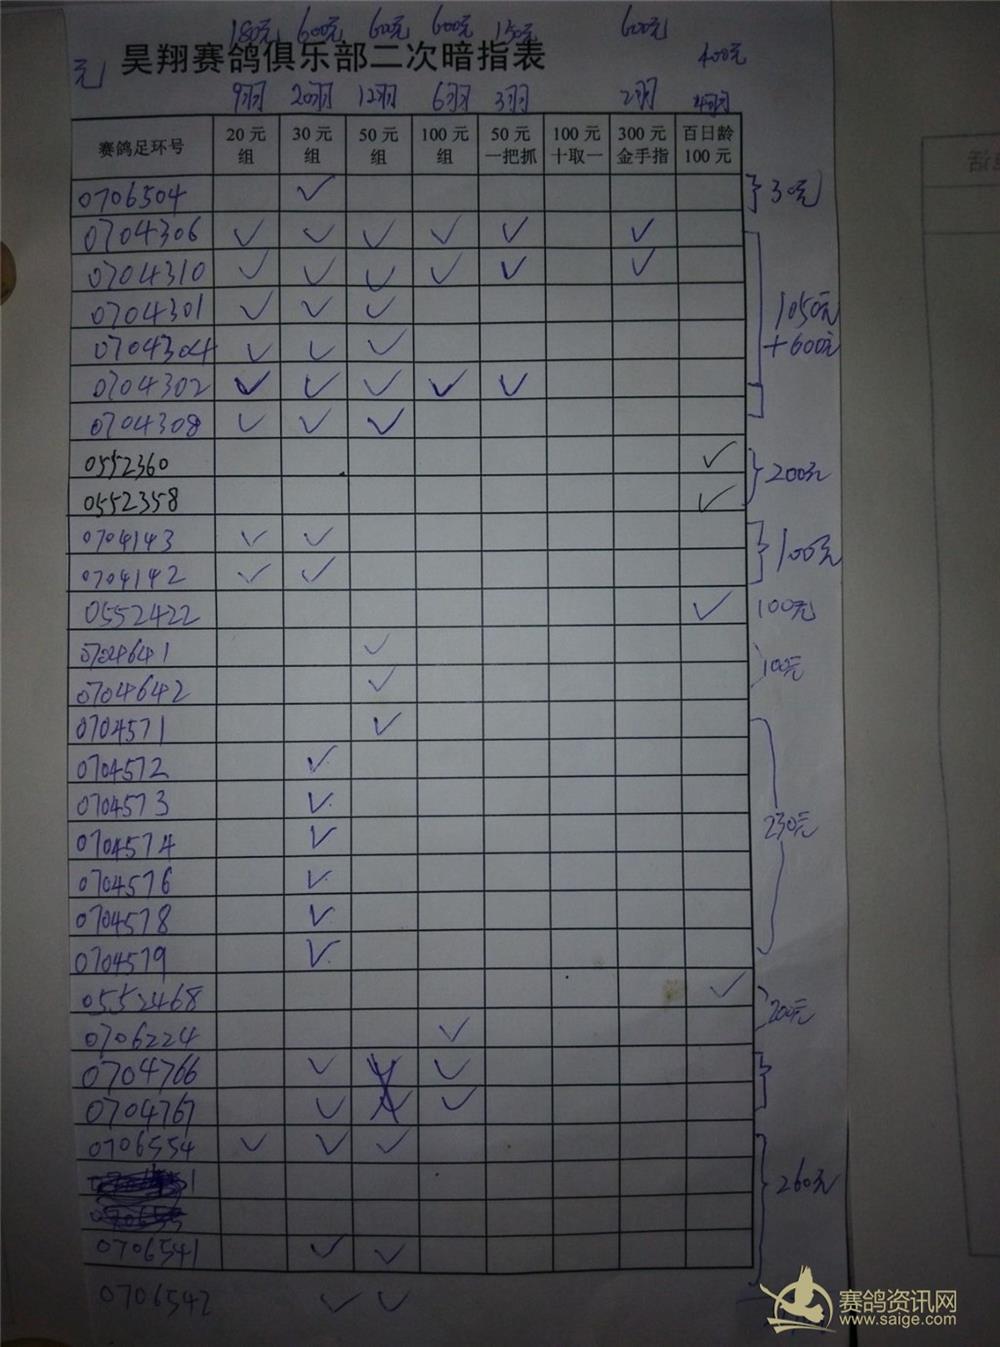 180元 600元 600元 600元 150元 600元 400元
元
昊翔赛鸽俱乐部二次暗指表
9羽 20羽 12羽 6羽 3羽 2羽 4羽
赛鸽足环号 20元组 30元组 50元组 100元组 50元一把抓 100元十取一 300元金手指 百日龄100元
0706504 ✓ 30元
0704306 ✓ ✓ ✓ ✓ ✓ ✓
0704310 ✓ ✓ ✓ ✓ ✓ ✓
0704301 ✓ ✓ ✓ 1050元
0704304 ✓ ✓ ✓ +600元
0704302 ✓ ✓ ✓ ✓ ✓
0704308 ✓ ✓ ✓
0552360 ✓ 200元
0552358 ✓
0704143 ✓ ✓ 100元
0704142 ✓ ✓
0552422 ✓ 100元
0704641 ✓ 100元
0704642 ✓
0704571 ✓
0704572 ✓
0704573 ✓ 230元
0704574 ✓
0704576 ✓
0704578 ✓
0704579 ✓
0552468 ✓ 200元
0706224 ✓
0704766 ✓ ✓
0704767 ✓ ✓
0706554 ✓ ✓ ✓
260元
0706541 ✓ ✓
0706542 ✓ ✓
赛鸽资讯网
www.saige.com